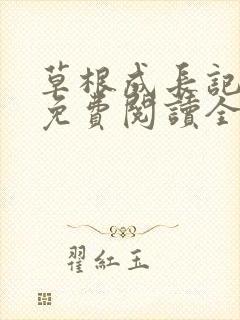 草根成长記
免費閱讀全
翟紅玉